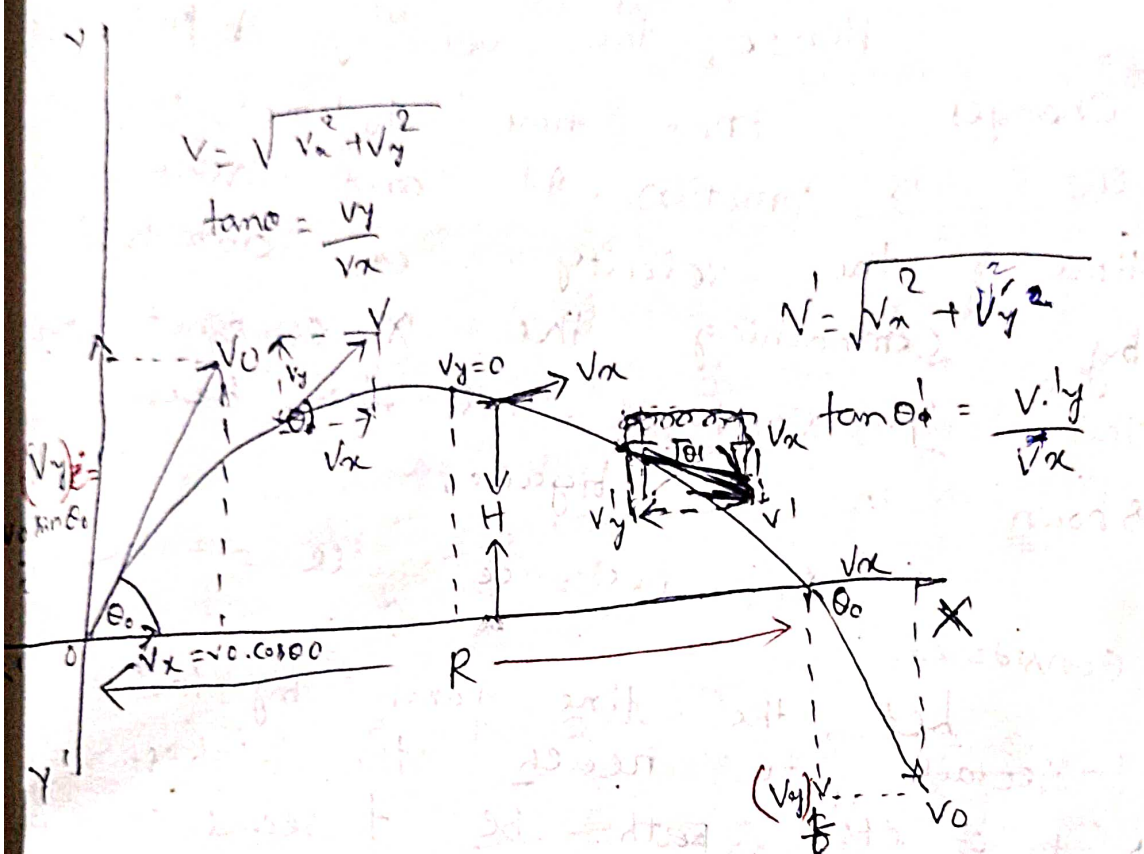 Y
V = √Vx² + Vy²
tanθ = Vy/Vx
V' = √Vx² + V'y²
tan θ' = V'y/Vx
V0
V
Vy
θ
Vx
Vy=0
Vx
H
θ'
Vx
V'y
V'
(Vy)i =
V0 sinθ0
θ0
0
Vx = V0.cosθ0
R
Vx
θ0
X
Y'
(Vy)
V0